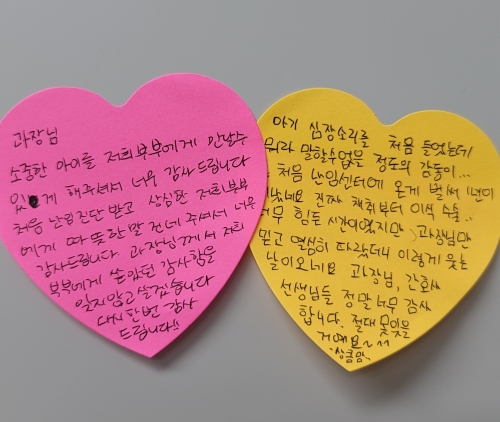 과장님
소중한 아이를 저희부부에게 만날수
있게 해주셔서 너무 감사드립니다
처음 난임진단받고 상심한 저희부부
에게 따뜻한말 건네 주셔서 너무
감사드립니다. 과장님께서 저희
부부에게 쏟았던 감사함을
잊지않고 살겠습니다
다시한번 감사
드립니다!!
아기 심장소리를 처음 들었는데
뭐라 말할수없을 정도의 감동이...
처음 난임센터에 온게 벌써 1년이
네요 진짜 채취부터 이식 수술..
너무 힘든 시간이였지만 과장님만
믿고 열심히 따랐더니 이렇게 웃는
날이오네요 과장님, 간호사
선생님들 정말너무 감사
합니다. 절대 못잊을
거예요~ㅋㅋ